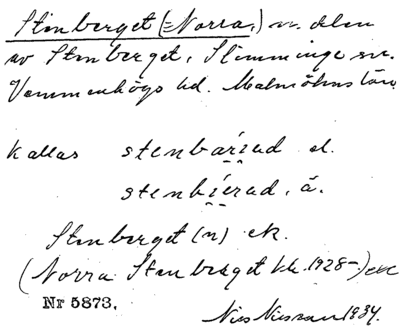 Stenberget (=Norra,) n. delen
av Stenberget, Slimminge sn.
Vemmenhögs hd. Malmöhus län
Kallas stenbäriad el.
stenbierad, ä.
Stenberget (n) ek.
(Norra Stenberget kk. 1928-)
Nr 5873.
Nils Nilsson 1934.